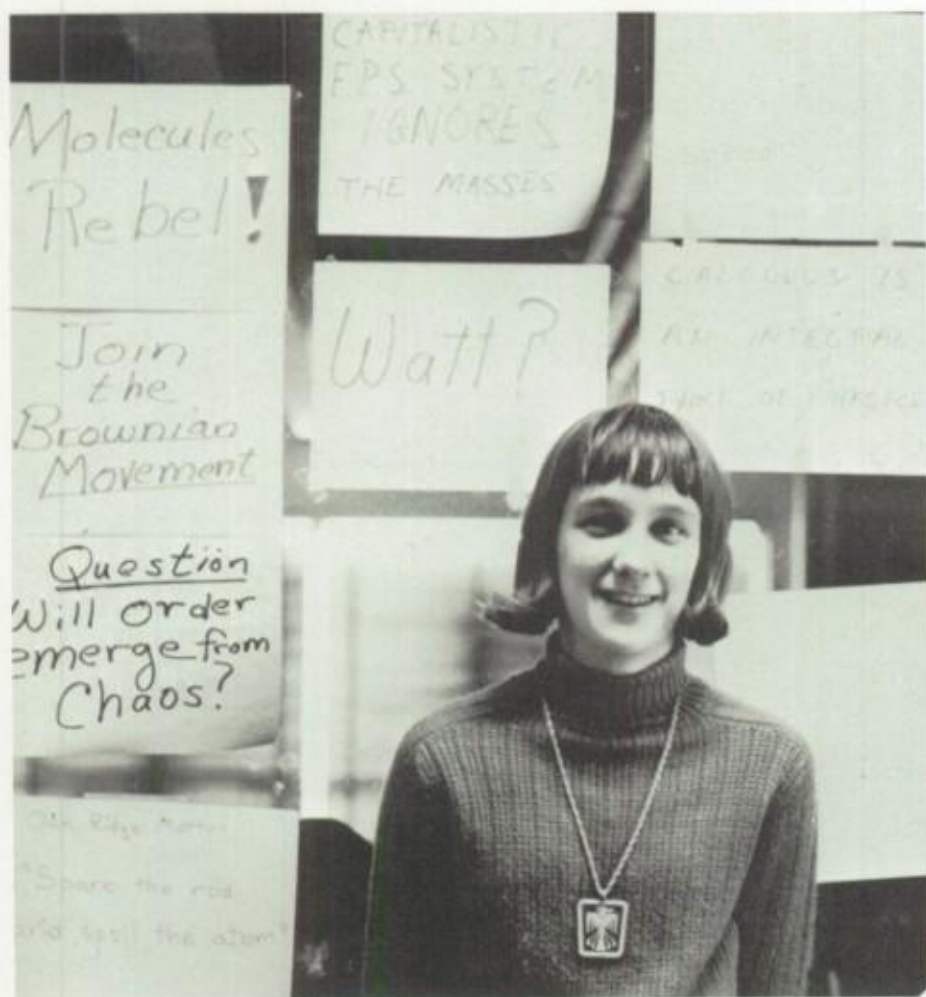 Molecules
Rebel!
Join
the
Brownian
Movement
Question
Will Order
emerge from
Chaos?
Oak Ridge Motto:
"Spare the rod
and spoil the atom"
CAPITALISTIC
FPS SYSTEM
IGNORES
THE MASSES
Watt?
CALCULUS IS
AN INTEGRAL
PART OF PHYSICS